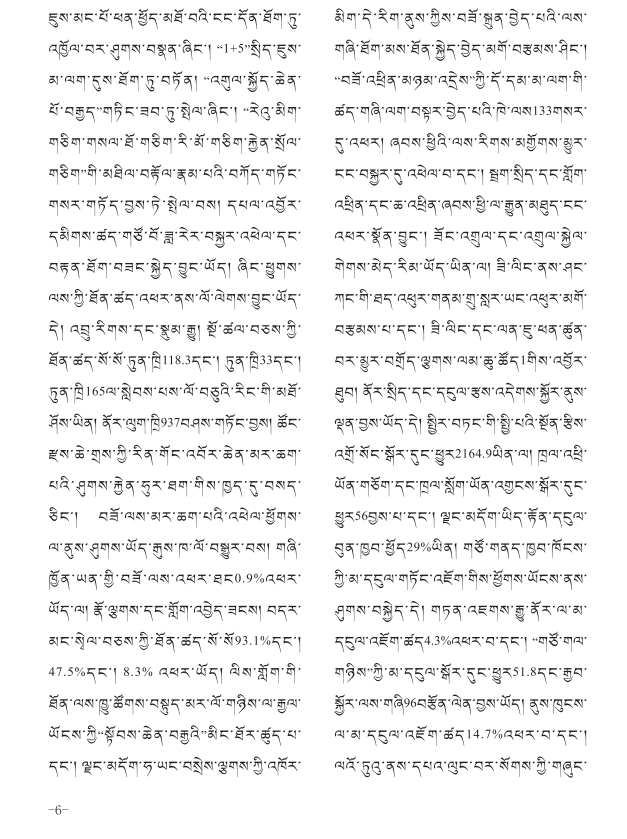 ཇུས་མང་པོ་ཕན་ཕྱོད་མཐོ་བའི་ངང་དོན་ཐོག་ཏུ་
འཁྱོལ་བར་ཤུགས་བསྣན་ཞིང་། “1+5”སྲིད་ཇུས་
མ་ལག་དུས་ཐོག་ཏུ་བཏོན། “འགུལ་སྐྱོད་ཆེན་
པོ་བརྒྱད”གཏིང་ཟབ་ཏུ་སྤེལ་ཞིང་། “རེའུ་མིག་
གཅིག་གསལ་ཐོ་གཅིག་རི་མོ་གཅིག་རྐྱེན་སྲོལ་
གཅིག”གི་མཐིལ་བརྟོལ་རྣམ་པའི་བཀོད་གཏོང་
གསར་གཏོད་བྱས་ཏེ་སྤེལ་བས། དཔལ་འབྱོར་
དམིགས་ཚད་གཙོ་བོ་ཟླ་རེར་བསྐྱར་འཕེལ་དང་
བརྟན་ཐོག་བཟང་སྐྱེད་བྱུང་ཡོད། ཞིང་ཕྱུགས་
ལས་ཀྱི་ཐོན་ཚད་འཕར་ནས་ལོ་ལེགས་བྱུང་ཡོད་
དེ། འབྲུ་རིགས་དང་སྣུམ་རྒྱུ། སྔོ་ཚལ་བཅས་ཀྱི་
ཐོན་ཚད་སོ་སོ་ཏུན་ཁྲི118.3དང་། ཏུན་ཁྲི33དང་།
ཏུན་ཁྲི165ལ་སླེབས་པས་ལོ་བཅུའི་རིང་གི་མཐོ་
ཤོས་ཡིན། ནོར་ལུག་ཁྲི937བཤས་གཏོང་བྱས། ཚོང་
རྫས་ཆེ་གྲས་ཀྱི་རིན་གོང་འབོར་ཆེན་མར་ཆག་
པའི་ཤུགས་རྐྱེན་ཧུར་ཐག་གིས་ཁྱད་དུ་བསད་
ཅིང་། བཟོ་ལས་མར་ཆག་པའི་འཕེལ་ཕྱོགས་
ལ་ནུས་ཤུགས་ཡོད་རྒུས་ཁ་ལོ་བསྒྱུར་བས། གཞི་
ཁྱོན་ཡན་གྱི་བཟོ་ལས་འཕར་ཐང0.9%འཕར་
ཡོད་ལ། རྡོ་ལྕགས་དང་གློག་འབྱེད་ཟངས། བདར་
མང་སེལ་བཅས་ཀྱི་ཐོན་ཚད་སོ་སོ93.1%དང་།
47.5%དང་། 8.3% འཕར་ཡོད། ལིས་གློག་གི་
ཐོན་ལས་ཁྱུ་ཚོགས་བསྟུད་མར་ལོ་གཉིས་ལ་རྒྱལ་
ཡོངས་ཀྱི“སྟོབས་ཆེན་བརྒྱའི”མིང་ཐོར་ཚུད་པ་
དང་། ལྗང་མདོག་ཧ་ཡང་བསྲེས་ལྕགས་ཀྱི་འཁོར་
མིག་དེ་རིག་ནུས་ཀྱིས་བཟོ་སྐྲུན་བྱེད་པའི་ལས་
གཞི་ཐོག་མས་ཐོན་སྐྱེད་བྱེད་མགོ་བརྩམས་ཤིང་།
“བཟོ་འཕྲིན་མཉམ་འདྲེས”ཀྱི་དོ་དམ་མ་ལག་གི་
ཚད་གཞི་ལག་བསྟར་བྱེད་པའི་ཁེ་ལས133གསར་
དུ་འཕར། ཞབས་ཕྱིའི་ལས་རིགས་མགྱོགས་མྱུར་
ངང་བསྐྱར་དུ་འཕེལ་བ་དང་། སྦྲག་སྲིད་དང་གློག་
འཕྲིན་དང་ཆ་འཕྲིན་ཞབས་ཕྱི་ལ་རྒྱུན་མཐུད་ངང་
འཕར་སྣོན་བྱུང་། ཟོང་འགྲུལ་དང་འགྲུལ་སྐྱེལ་
གེགས་མེད་རིམ་ཡོད་ཡིན་ལ། ཟི་ལིང་ནས་ཤང་
ཀང་གི་ཐད་འཕུར་གནམ་གྲུ་སླར་ཡང་འཕུར་མགོ་
བརྩམས་པ་དང་། ཟི་ལིང་དང་ལན་ཇུ་ཕན་ཚུན་
བར་མྱུར་བགྲོད་ལྕགས་ལམ་ཆུ་ཚོད1གིས་འབྱོར་
ཐུབ། ནོར་སྲིད་དང་དངུལ་རྩས་འདེགས་སྐྱོར་ནུས་
ལྡན་བྱས་ཡོད་དེ། སྤྱིར་བཏང་གི་སྤྱི་པའི་སྔོན་རྩིས་
འགྲོ་སོང་སྒོར་དུང་ཕྱུར2164.9ཡིན་ལ། ཁྲལ་འཕྲི་
ཡོན་གཅོག་དང་ཁྲལ་སློག་ཡོན་འགྱངས་སྒོར་དུང་
ཕྱུར56བྱས་པ་དང་། ལྗང་མདོག་ཡིད་རྟོན་དངུལ་
བུན་ཁྱབ་ཕྱོད29%ཡིན། གཙོ་གནད་ཁྱབ་ཁོངས་
ཀྱི་མ་དངུལ་གཏོང་འཇོག་གིས་ཕྱོགས་ཡོངས་ནས་
ཤུགས་བསྐྱེད་དེ། གཏན་འཇགས་རྒྱུ་ནོར་ལ་མ་
དངུལ་འཇོག་ཚད4.3%འཕར་བ་དང་། “གཙོ་གལ་
གཉིས”ཀྱི་མ་དངུལ་སྒོར་དུང་ཕྱུར51.8དང་རྒྱབ་
སྐྱོར་ལས་གཞི96བརྩོན་ལེན་བྱས་ཡོད། ནུས་ཁུངས་
ལ་མ་དངུལ་འཇོག་ཚད14.7%འཕར་བ་དང་།
ལའོ་ཏུའུ་ནས་དཔའ་ལུང་བར་སོགས་ཀྱི་གཞུང་
-6-